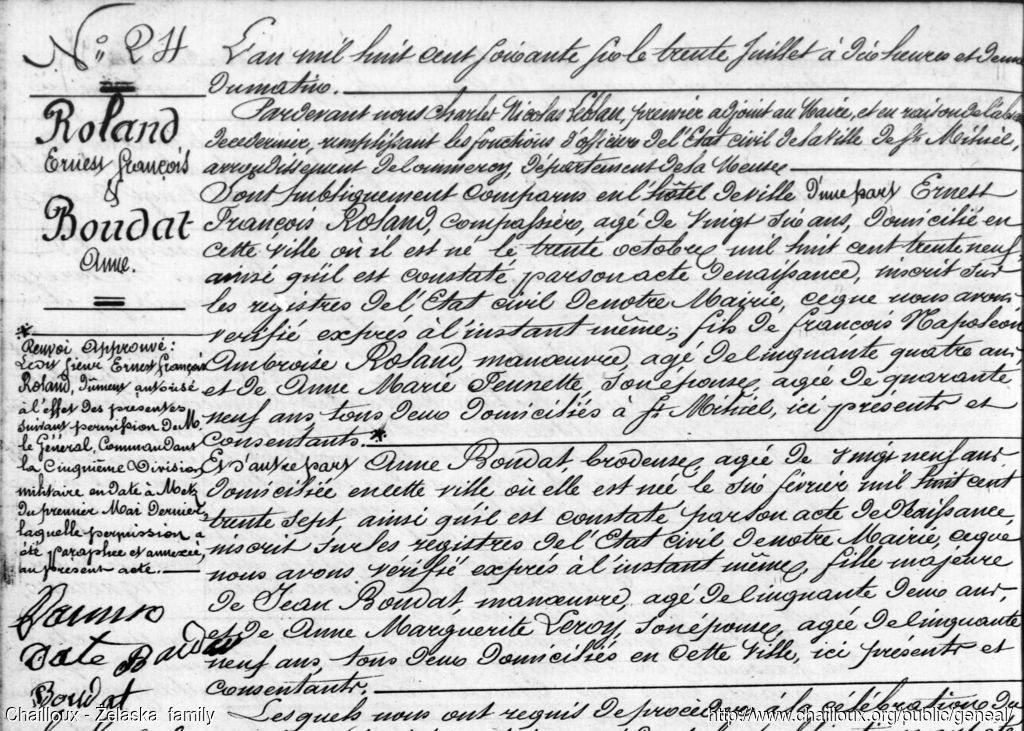 N° 24
Roland
Ernest François
&
Boudat
Anne.
L'an mil huit cent soixante six le trente Juillet à dix heures et demie
du matin.
Pardevant nous Charles Nicolas Leblan, premier adjoint au Maire, et en raison de l'absence
de ce dernier, remplissant les fonctions d'officier de l'Etat civil de la Ville de St Mihiel,
arrondissement de Commercy, Département de la Meuse
Sont publiquement comparus en l'hôtel de Ville d'une part Ernest
François Roland, compassier, agé de vingt six ans, domicilié en
cette ville où il est né le trente octobre mil huit cent trente neuf,
ainsi qu'il est constaté par son acte de naissance, inscrit sur
les registres de l'Etat civil de notre Mairie, ce que nous avons
verifié exprès à l'instant même; fils de François Napoléon
Ambroise Roland, manœuvre, agé de cinquante quatre ans
et de Anne Marie Jennette, son épouse, agée de quarante
neuf ans, tous deux domiciliés à St Mihiel, ici présents et
consentants. *
Et d'autre part Anne Boudat, brodeuse, agée de vingt neuf ans
domiciliée en cette ville où elle est née le six février mil huit cent
trente sept, ainsi qu'il est constaté par son acte de Naissance,
inscrit sur les registres de l'Etat civil de notre Mairie, ce que
nous avons verifié exprès à l'instant même, fille majeure
de Jean Boudat, manœuvre, agé de cinquante deux ans,
et de Anne Marguerite Leroy, son épouse, agée de cinquante
neuf ans, tous deux domiciliés en cette Ville, ici présents et
consentants.
Lesquels nous ont requis de procéder à la célébration du
*
Renvoi Approuvé:
Ledit Sieur Ernest François
Roland, dûment autorisé
à l'effet des présentes
suivant permission de M.
le Général, Commandant
la Cinquième Division
militaire en date à Metz
du premier Mai Dernier,
laquelle permission a
été paraphée et annexée,
au présent acte.
Boudat
Chailloux - Zelaska family
http://www.chailloux.org/public/geneal/